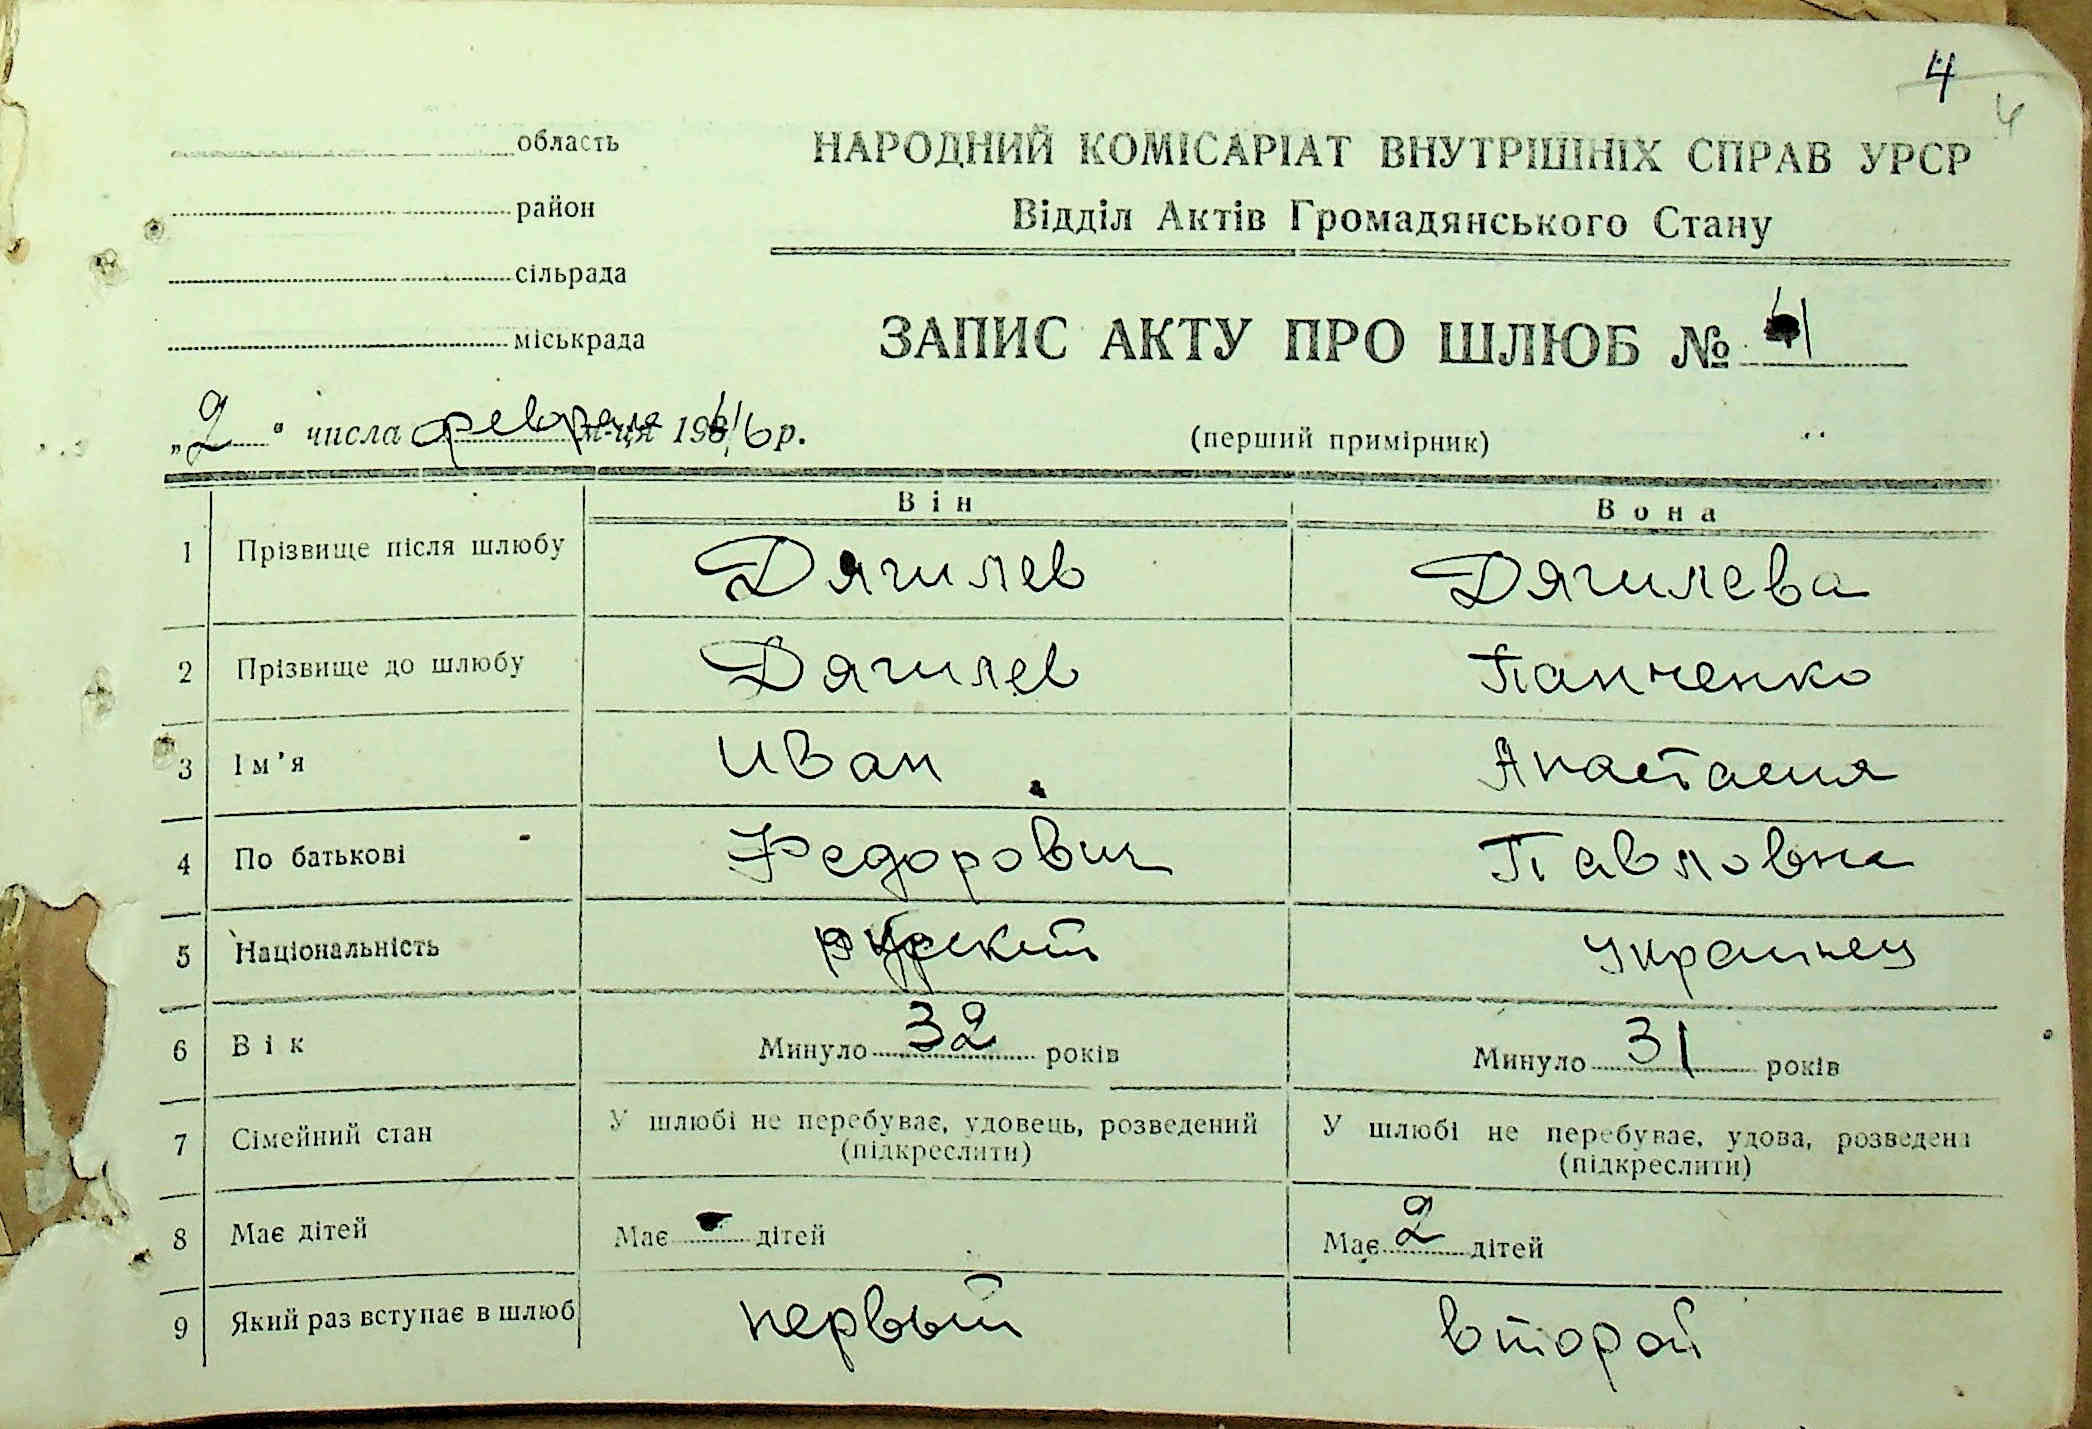 4
4
область
НАРОДНИЙ КОМІСАРІАТ ВНУТРІШНІХ СПРАВ УРСР
район
Відділ Актів Громадянського Стану
сільрада
міськрада
ЗАПИС АКТУ ПРО ШЛЮБ № 41
„2" числа февраля м-ця 1946 р.
(перший примірник)
Він Вона
1 Прізвище після шлюбу Дягилев Дягилева
2 Прізвище до шлюбу Дягилев Панченко
3 Ім'я Иван Анастасия
4 По батькові Федорович Павловна
5 Національність русский Украинец
6 Вік Минуло 32 років Минуло 31 років
7 Сімейний стан У шлюбі не перебуває, удовець, розведений У шлюбі не перебуває, удова, розведена
(підкреслити) (підкреслити)
8 Має дітей Має - дітей Має 2 дітей
9 Який раз вступає в шлюб первый второй